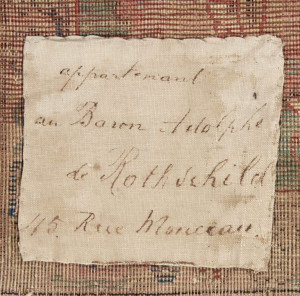 appartenant
au Baron Adolphe
de Rothschild
45 Rue Monceau.